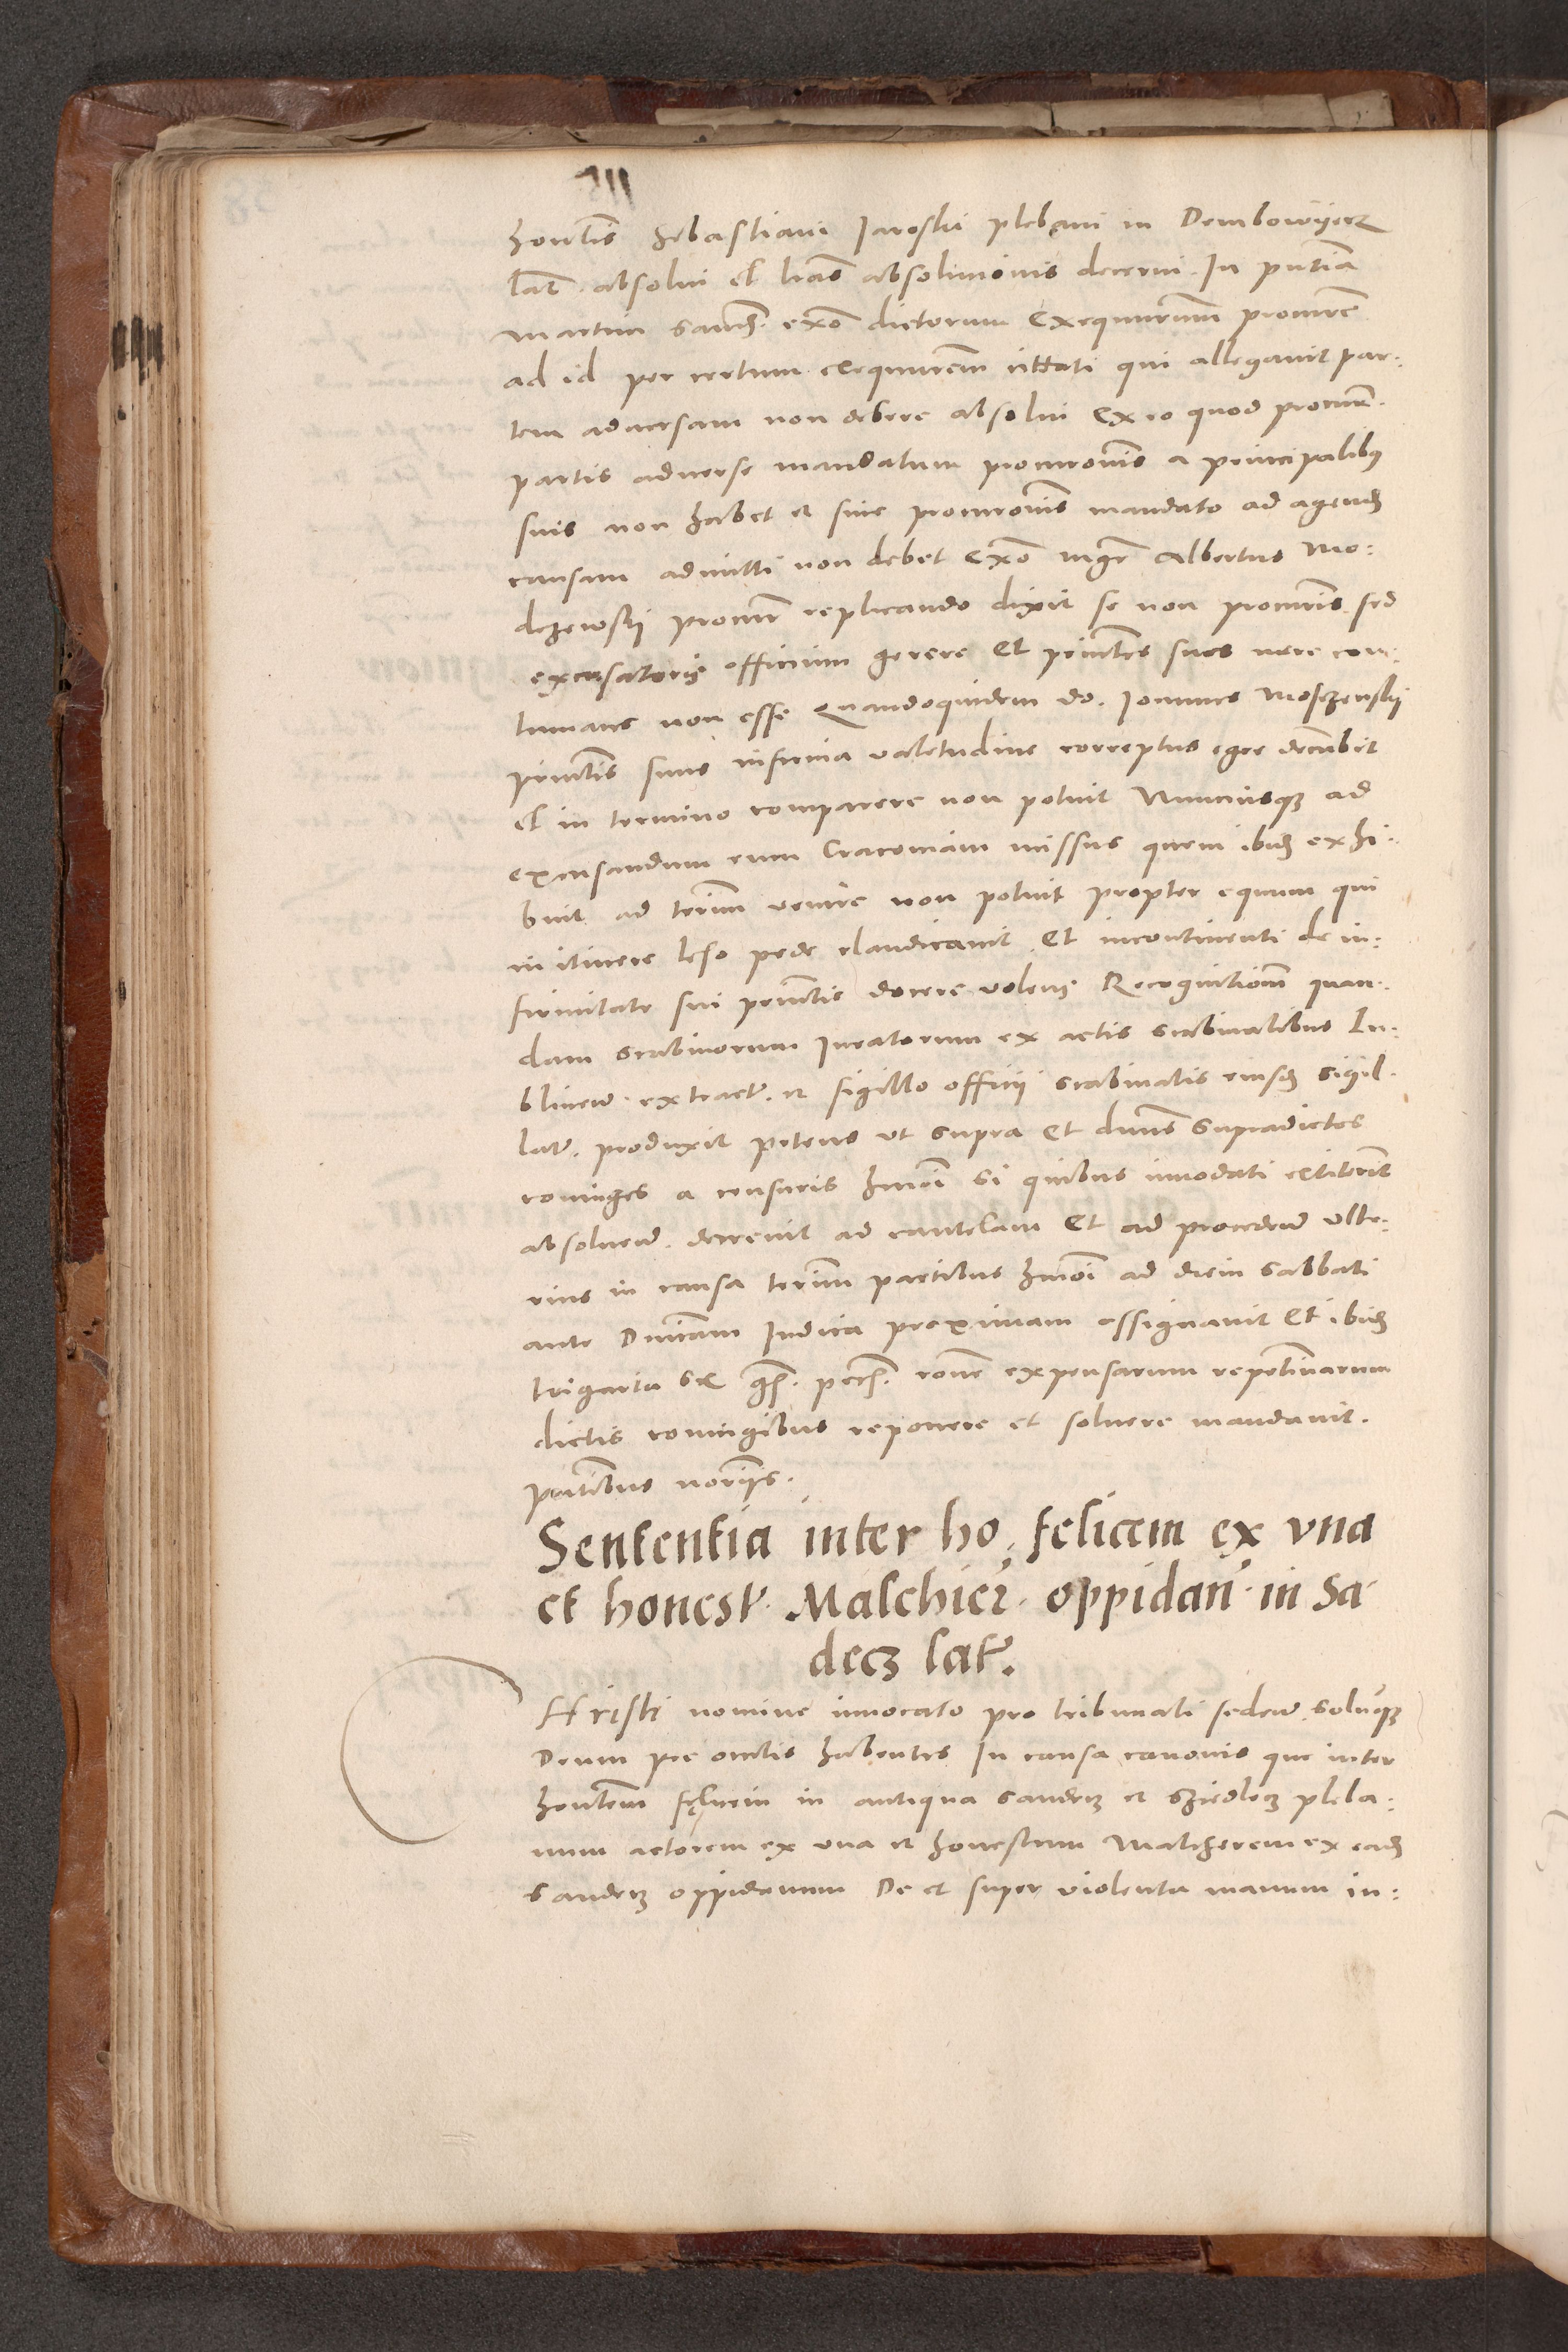 honlis Sebastiani Jaroski plebani in Dembowyecz
lat. absolui et lras absolutionis decerni. In pntia
Martini Sand. exo dictorum Exequutorum procure
ad id per certum exequutorem citati qui allegauit par:
tem aduersam non debere absolui Ex eo quod procur.
partis aduerse mandatum procuronis a principalibus
suis non habet et sine procuronis mandato ad agend
causam admitti non debet Exo mgr Albertus Mo:
dczewskij procur replicando dixit se non procuris sed
excusatoris officium gerere Et principales suos vere con:
tumaces non esse Quandoquidem do. Joannes Moszczenskij
principalis suus infirma valetudine correptus egre decubit
et in termino comparere non potuit Nunciusque ad
excusandum eum Cracouiam missus quem ibid exhi:
buit ad terminum venire non potuit propter equum qui
in itinere leso pede claudicauit Et incontinenti de in:
firmitate sui principalis docere volens Recognitionem quan:
dam scabinorum Juratorum ex actis scabinalibus In
blinew extract. et sigillo officij scabinalis eiusd sigil:
lat. produxit petens vt supra Et duns supradictos
coniuges a censuris hmoi si quibus innodati extiterint
absoluend. decreuit ad cautelam Et ad procedend vlte:
rius in causa terminum partibus hmoi ad diem Sabbati
ante Dnicam Judica proximam assignauit Et ibid
triginta sex gs. pecn. rone expensarum repetinarum
dictis coniugibus reponere et soluere mandauit.
pntibus norijs.
Sententia inter ho. felicem ex vna
et honest. Malchier. oppidan. in Sa
decz lat.
Hristi nomine inuocato pro tribunali seden. soluque
Deum pre oculis habentes In causa canonis que inter
honlem Felicem in antiqua Sandecz et Sziedlecz pleba:
num actorem ex vna et honestum Malcherem ex ead
Sandecz oppidanum De et super violenta manum in: